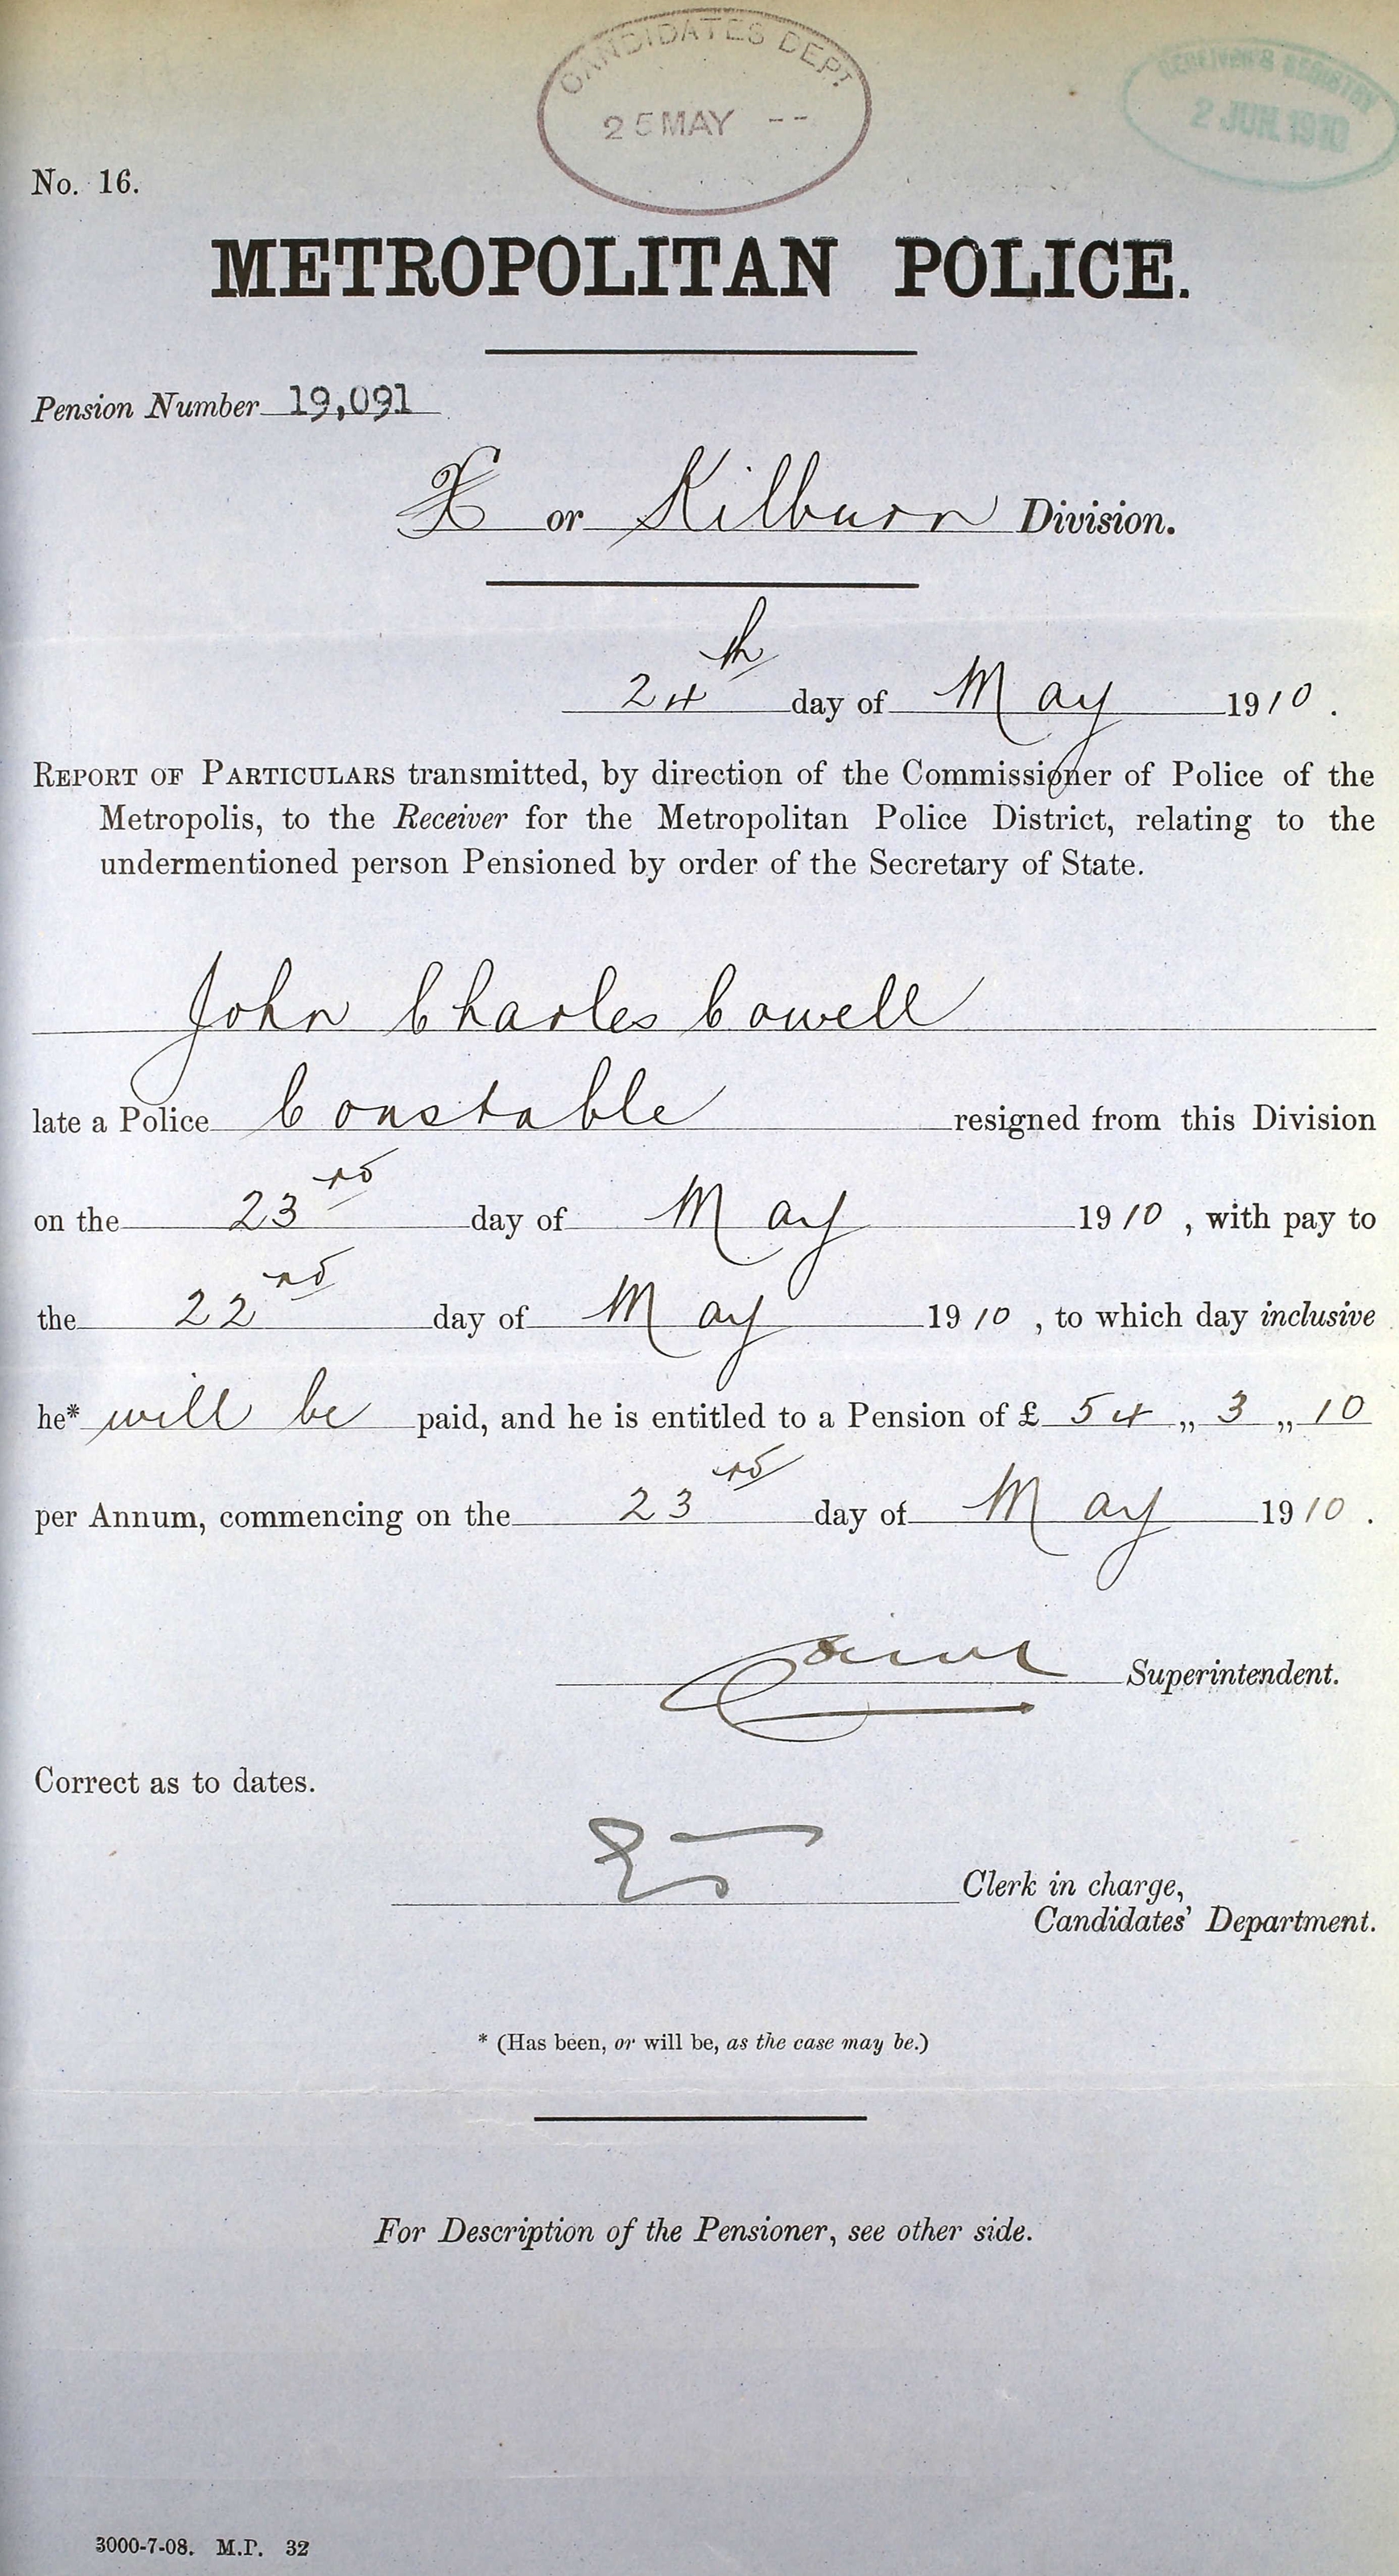 CANDIDATES DEPT
25 MAY --
RECEIVER'S REGISTRY
2 JUN. 1910
No. 16.
METROPOLITAN POLICE.
Pension Number 19,091
X or Kilburn Division.
24th day of May 1910.
REPORT OF PARTICULARS transmitted, by direction of the Commissioner of Police of the
Metropolis, to the Receiver for the Metropolitan Police District, relating to the
undermentioned person Pensioned by order of the Secretary of State.
John Charles Cowell
late a Police Constable resigned from this Division
on the 23rd day of May 1910, with pay to
the 22nd day of May 1910, to which day inclusive
he* will be paid, and he is entitled to a Pension of £ 54 „ 3 „ 10
per Annum, commencing on the 23rd day of May 1910.
Superintendent.
Correct as to dates.
Clerk in charge,
Candidates' Department.
* (Has been, or will be, as the case may be.)
For Description of the Pensioner, see other side.
3000-7-08. M.P. 32